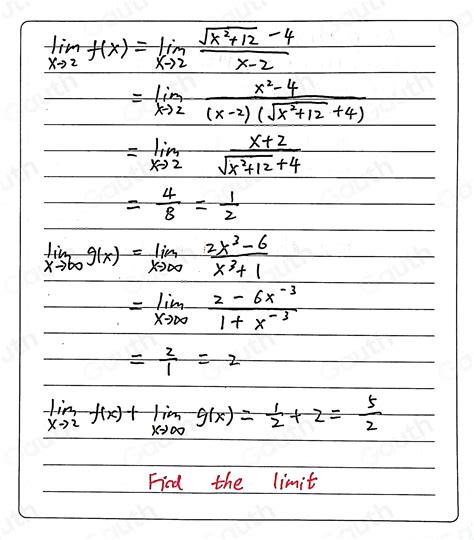 lim x→2 f(x) = lim x→2 (√(x²+12) - 4)/(x-2)
= lim x→2 (x²-4)/((x-2)(√(x²+12) +4))
= lim x→2 (x+2)/(√(x²+12)+4)
= 4/8 = 1/2
lim x→∞ g(x) = lim x→∞ (2x³-6)/(x³+1)
= lim x→∞ (2-6x⁻³)/(1+x⁻³)
= 2/1 = 2
lim x→2 f(x) + lim x→∞ g(x) = 1/2 + 2 = 5/2
Find the limit